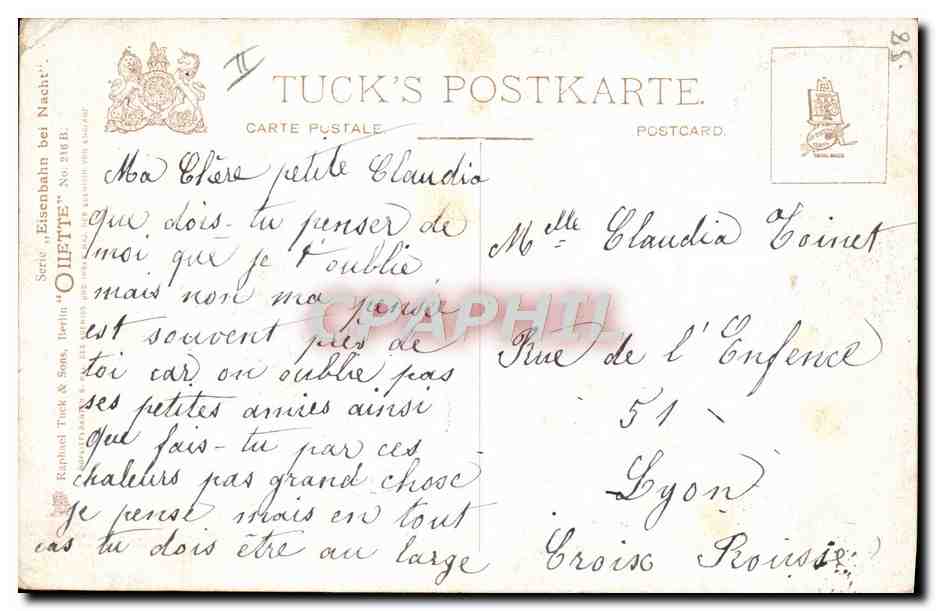 II
85.
TUCK'S POSTKARTE.
CARTE POSTALE
POSTCARD.
Serie „Eisenbahn bei Nacht".
Raphael Tuck & Sons, Berlin "OILETTE" No. 216 B.
Ma Chère petite Claudia
que dois-tu penser de
moi que je t'oublie
mais non ma pensée
est souvent près de
toi car on oublie pas
ses petites amies ainsi
que fais-tu par ces
chaleurs pas grand chose
je pense mais en tout
cas tu dois être au large
Melle Claudia Toinet
Rue de l'Enfence
51
Lyon
Croix Rousse
CPAPHIL